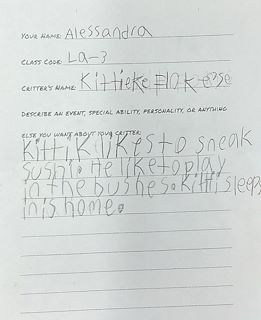 YOUR NAME: Alessandra
CLASS CODE: La-3
CRITTER'S NAME:
DESCRIBE AN EVENT, SPECIAL ABILITY, PERSONALITY, OR ANYTHING
ELSE YOU WANT ABOUT YOUR CRITTER:
Kitti K likes to sneak
sushi. He like to play
in the bushes. Kitti sleeps
in is home.